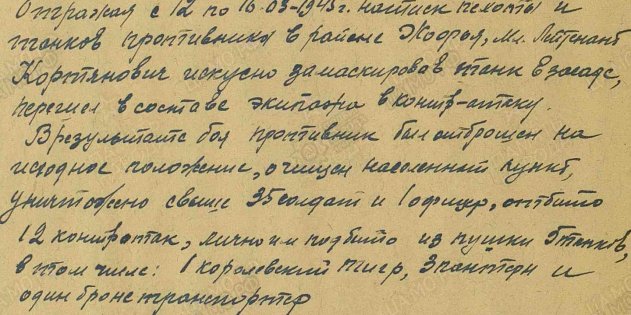 Отражая с 12 по 16.03-1945г. натиск пехоты и
танков противника в районе Жофья, Мл. Литенант
Кортянович искусно замаскировав танк в засаде,
перешел в составе экипажа в контр-атаку.
В результате боя противник был отброшен на
исходное положение, очищен населенный пункт,
уничтожено свыше 35 солдат и 1 офицер, отбито
12 контратак, лично им подбито из пушки 5 танков,
в том числе: 1 королевский тигр, 3 пантеры и
один бронетранспортер